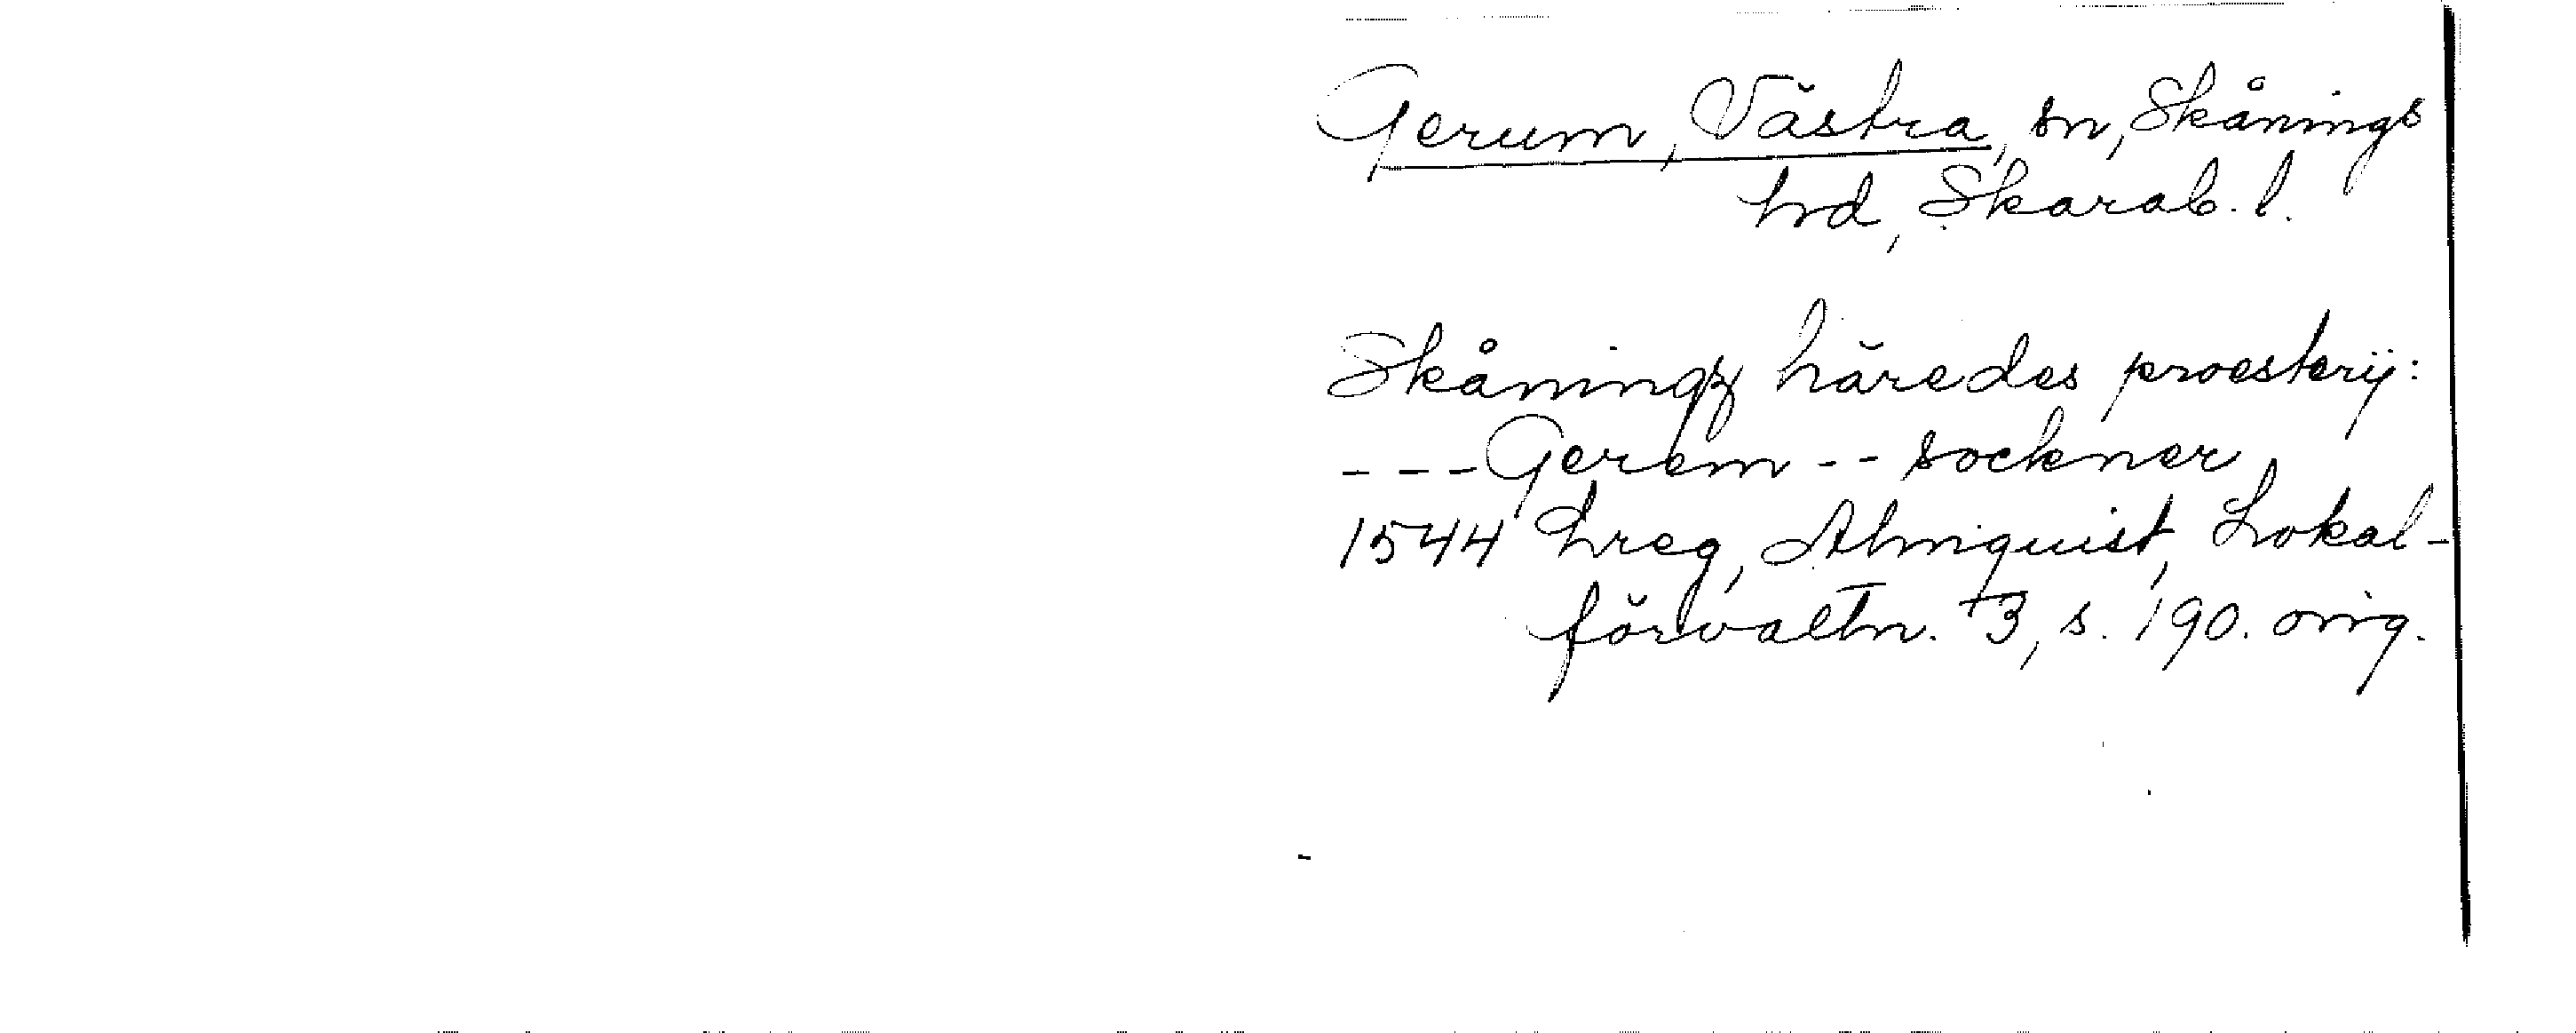 Gerum, Västra, sn, Skånings
hd, Skarab. l.
Skåningz häredes proesterij:
---Gerem -- sockner
1544 hreg, Almquist, Lokal-
förvaltn. 3, s. 190. orig.